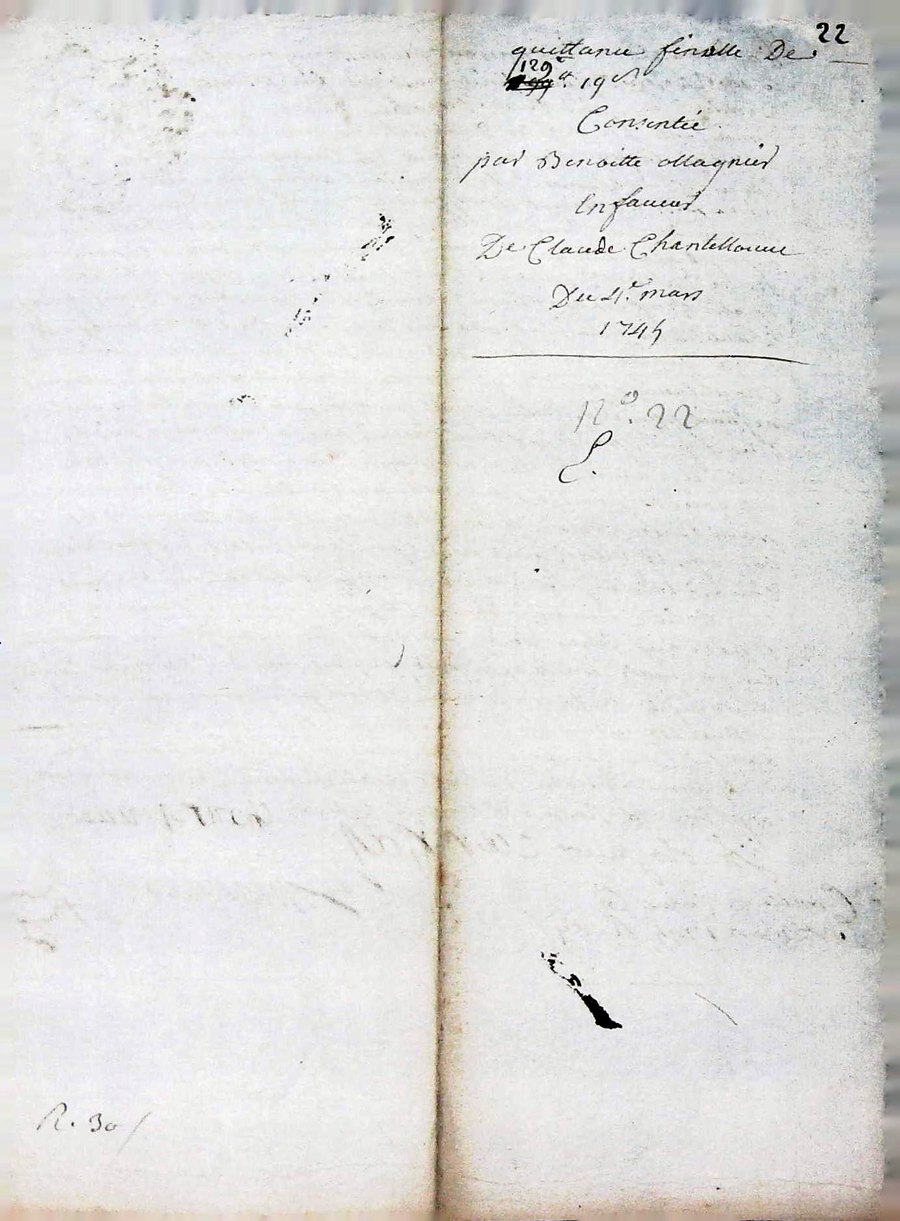 22
quittance finalle De
129 ₶ 19 s
Consentie
par Benoitte Magnier
En faveur
De Claude Chantellouve
Du 4e mars
1745
N° 22
R. 30